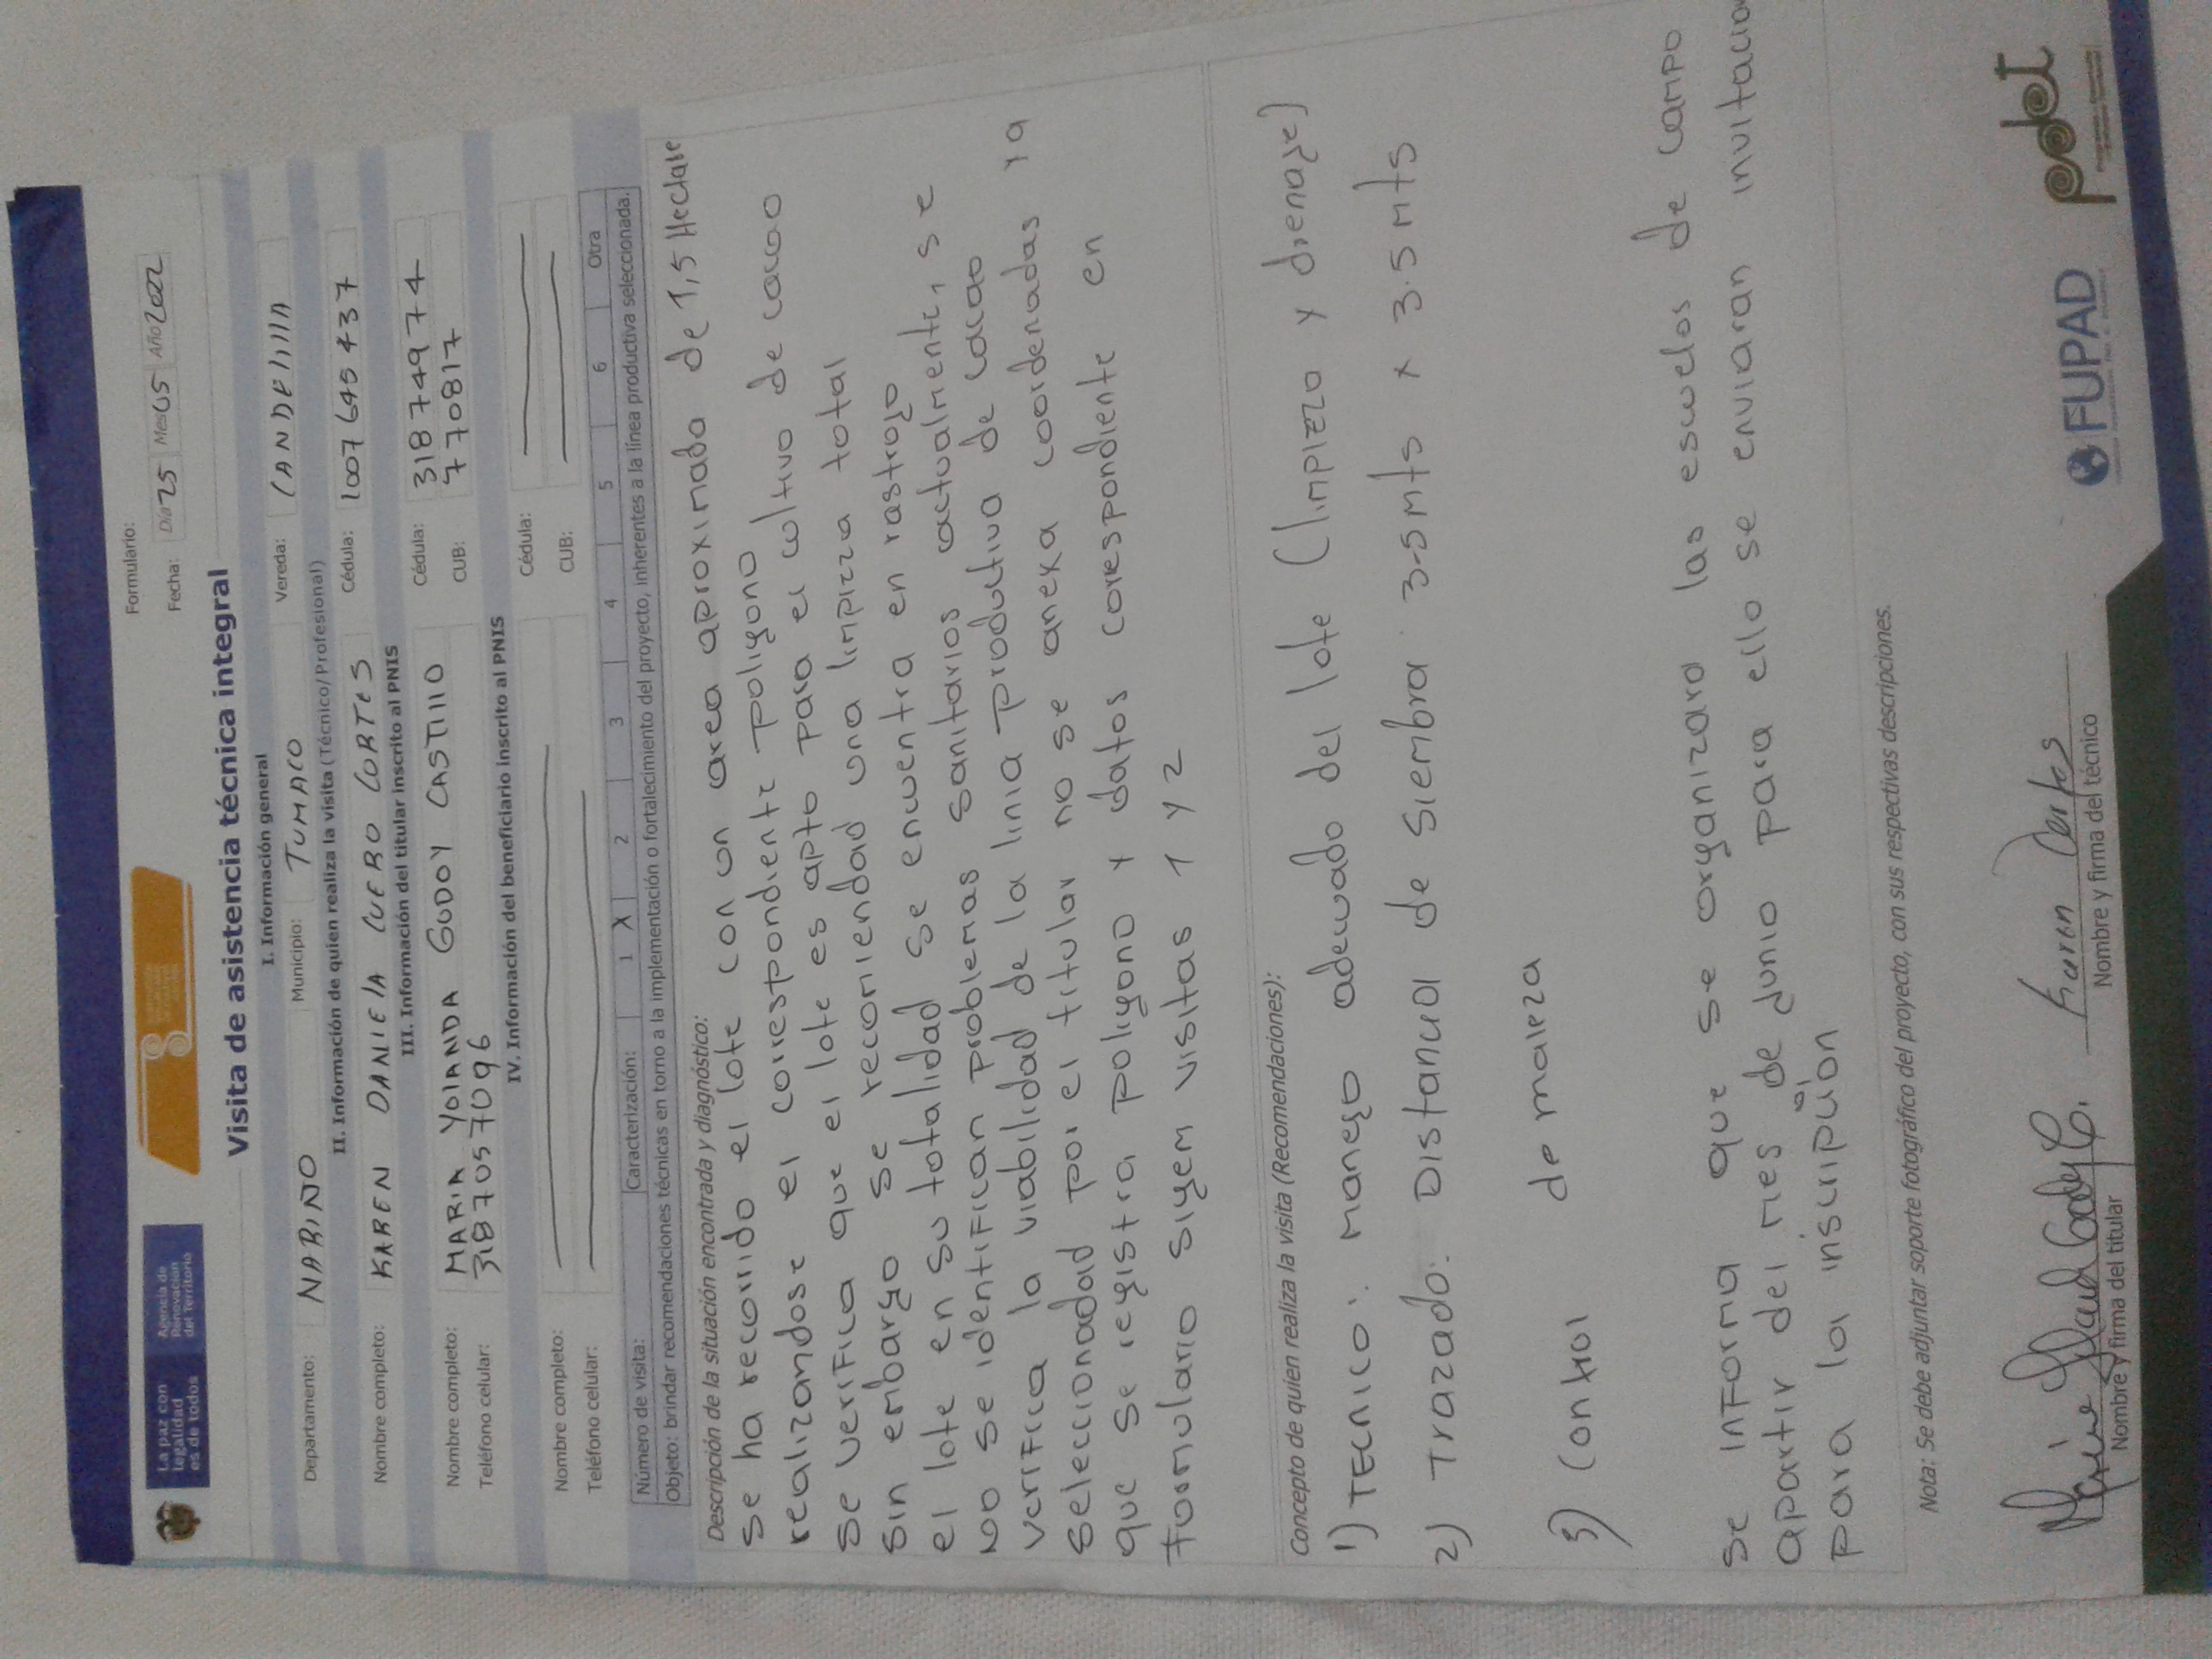 La paz con
legalidad
es de todos
Agencia de
Renovación
del Territorio
Formulario:
Fecha: Día 25 Mes 05 Año 2022
Visita de asistencia técnica integral
I. Información general
Departamento: NARINO Municipio: TUMACO Vereda: CANDELILLA
II. Información de quien realiza la visita (Técnico/Profesional)
Nombre completo: KAREN DANIELA CUERO CORTES Cédula: 1007645437
III. Información del titular inscrito al PNIS
Nombre completo: MARIA YOLANDA GODOY CASTILLO Cédula: 31874974
Teléfono celular: 3187057096 CUB: 770817
IV. Información del beneficiario inscrito al PNIS
Nombre completo: Cédula:
Teléfono celular: CUB:
Número de visita: Caracterización: 1 X 2 3 4 5 6 Otra
Objeto: brindar recomendaciones técnicas en torno a la implementación o fortalecimiento del proyecto, inherentes a la línea productiva seleccionada.
Descripción de la situación encontrada y diagnóstico:
se ha recorrido el lote con un area aproximada de 1,5 Hectare
realizandose el correspondiente poligono
se verifica que el lote es apto para el cultivo de cacao
sin embargo se recomiendad una limpiza total
el lote en su totalidad se encuentra en rastrojo
No se identifican problemas sanitarios actualmente, se
verifica la viabilidad de la linia productiva de cacao
seleccionadad por el titular no se anexa coordenadas ya
que se registra poligono y datos correspondiente en
formulario sigem visitas 1 y 2
Concepto de quien realiza la visita (Recomendaciones):
1) TECNICO: manejo adecuado del lote (limpieza y drenaje)
2) Trazado: Distancia de siembra 3.5 mts x 3.5 mts
3) Control de maleza
se informa que se organizara las escuelas de campo
apartir del mes de junio para ello se enviaran invitacion
para la inscripcion
Nota: Se debe adjuntar soporte fotográfico del proyecto, con sus respectivas descripciones.
Karen Cortes
Nombre y firma del titular Nombre y firma del técnico
FUPAD
pdet